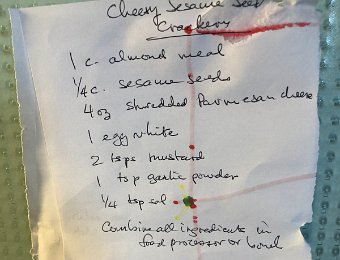 Cheesy Sesame Seed
Crackers
1 c. almond meal
1/4 c. sesame seeds
4 oz shredded Parmesan cheese
1 egg white
2 tsps mustard
1 tsp garlic powder
1/4 tsp sal
Combine all ingredients in
food processor or bowl